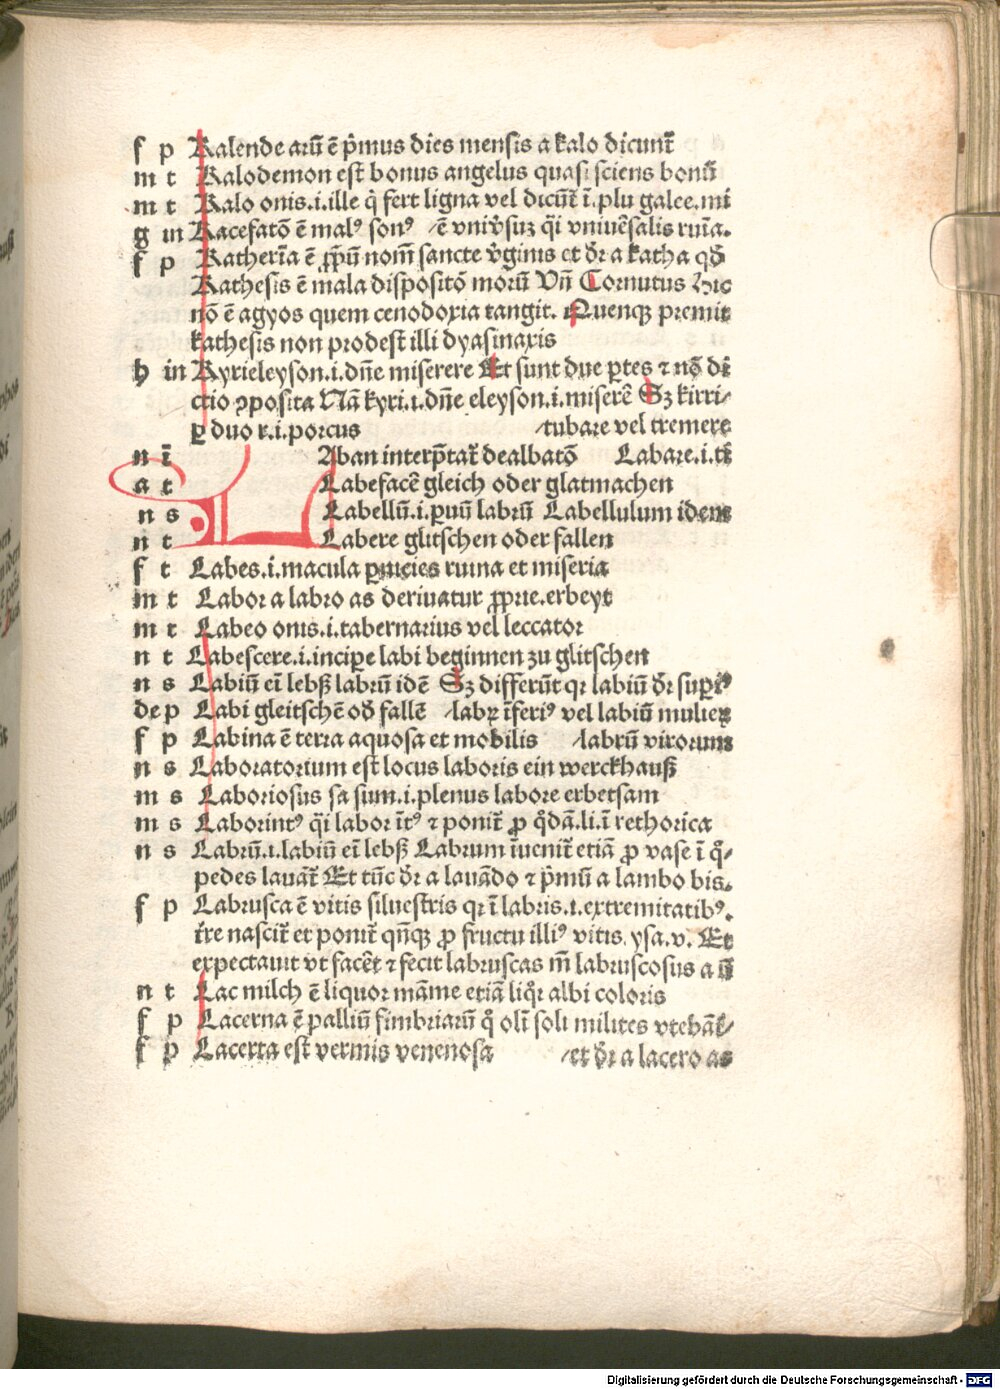 f p Kalende arū ē p̄mus dies mensis a kalo dicunt̄
m t Kalodemon est bonus angelus quasi sciens bonū
m t Kalo onis.i.ille q̇ fert ligna vel dicūt̄ ī.plu galee.mi
g in Kacefatō ē malꝰ sonꝰ /ē vniv̄suz q̇i vniuēsalis ruīa.
f p Katherīa ē ꝓpū nom̄ sancte v̄ginis et dr̄ a katha qd̄
Kathesis ē mala dispositō morū Vn̄ Cornutus Hic
nō ē agyos quem cenodoxia tangit. Quenqꝫ premit
kathesis non prodest illi dyasinaxis
h in Kyrieleyson.i.dn̄e miserere Et sunt due ꝑtes ⁊ nō di
ctio ꝯposita Nā kyri.i.dn̄e eleyson.i.miserē Sꝫ kirri/
ꝑ duo r.i.porcus /tubare vel tremere
n ī Laban interp̄tat̄ dealbatō Labare.i.ti
a t Labefacē gleich oder glatmachen
n s Labellū.i.ꝑuū labrū Labellulum idem
n t Labere glitschen oder fallen
f t Labes.i.macula ꝑnicies ruina et miseria
m t Labor a labro as deriuatur ꝓprie.erbeyt
m t Labeo onis.i.tabernarius vel leccator
n t Labescere.i.incipe labi beginnen zu glitschen
n s Labiū eī lebß labrū idē Sꝫ differūt qr labiū dr̄ supīꝰ
de p Labi gleitschē od̄ fallē /labꝝ īferiꝰ vel labiū mulieꝝ
f p Labina ē terra aquosa et mobilis /labrū virorum
n s Laboratorium est locus laboris ein werckhauß
m s Laboriosus sa sum.i.plenus labore erbetsam
m s Laborintꝰ q̇i labor īt̄ꝰ ⁊ ponit̄ ꝓ q̇dā.li.ī rethorica
n s Labrū.i.labiū eī lebß Labrum īuenit̄ etiā ꝓ vase ī q̇/
pedes lauāt̄ Et tūc dr̄ a lauādo ⁊ p̄mū a lambo bis.
f p Labrusca ē vitis siluestris qr ī labris.i.extremitatibꝰ.
t̄re nascit̄ et ponit̄ qn̄qꝫ ꝓ fructu illiꝰ vitis.ysa.v. Et
expectauit vt facēt ⁊ fecit labruscas m̄ labruscosus a ū
n t Lac milch ē liquor māme etiā liq̇r albi coloris
f p Lacerna ē palliū fimbriarū q̇ olī soli milites vtebāt̄/
f p Lacerta est vermis venenosa /et dr̄ a lacero as
Digitalisierung gefördert durch die Deutsche Forschungsgemeinschaft - DFG